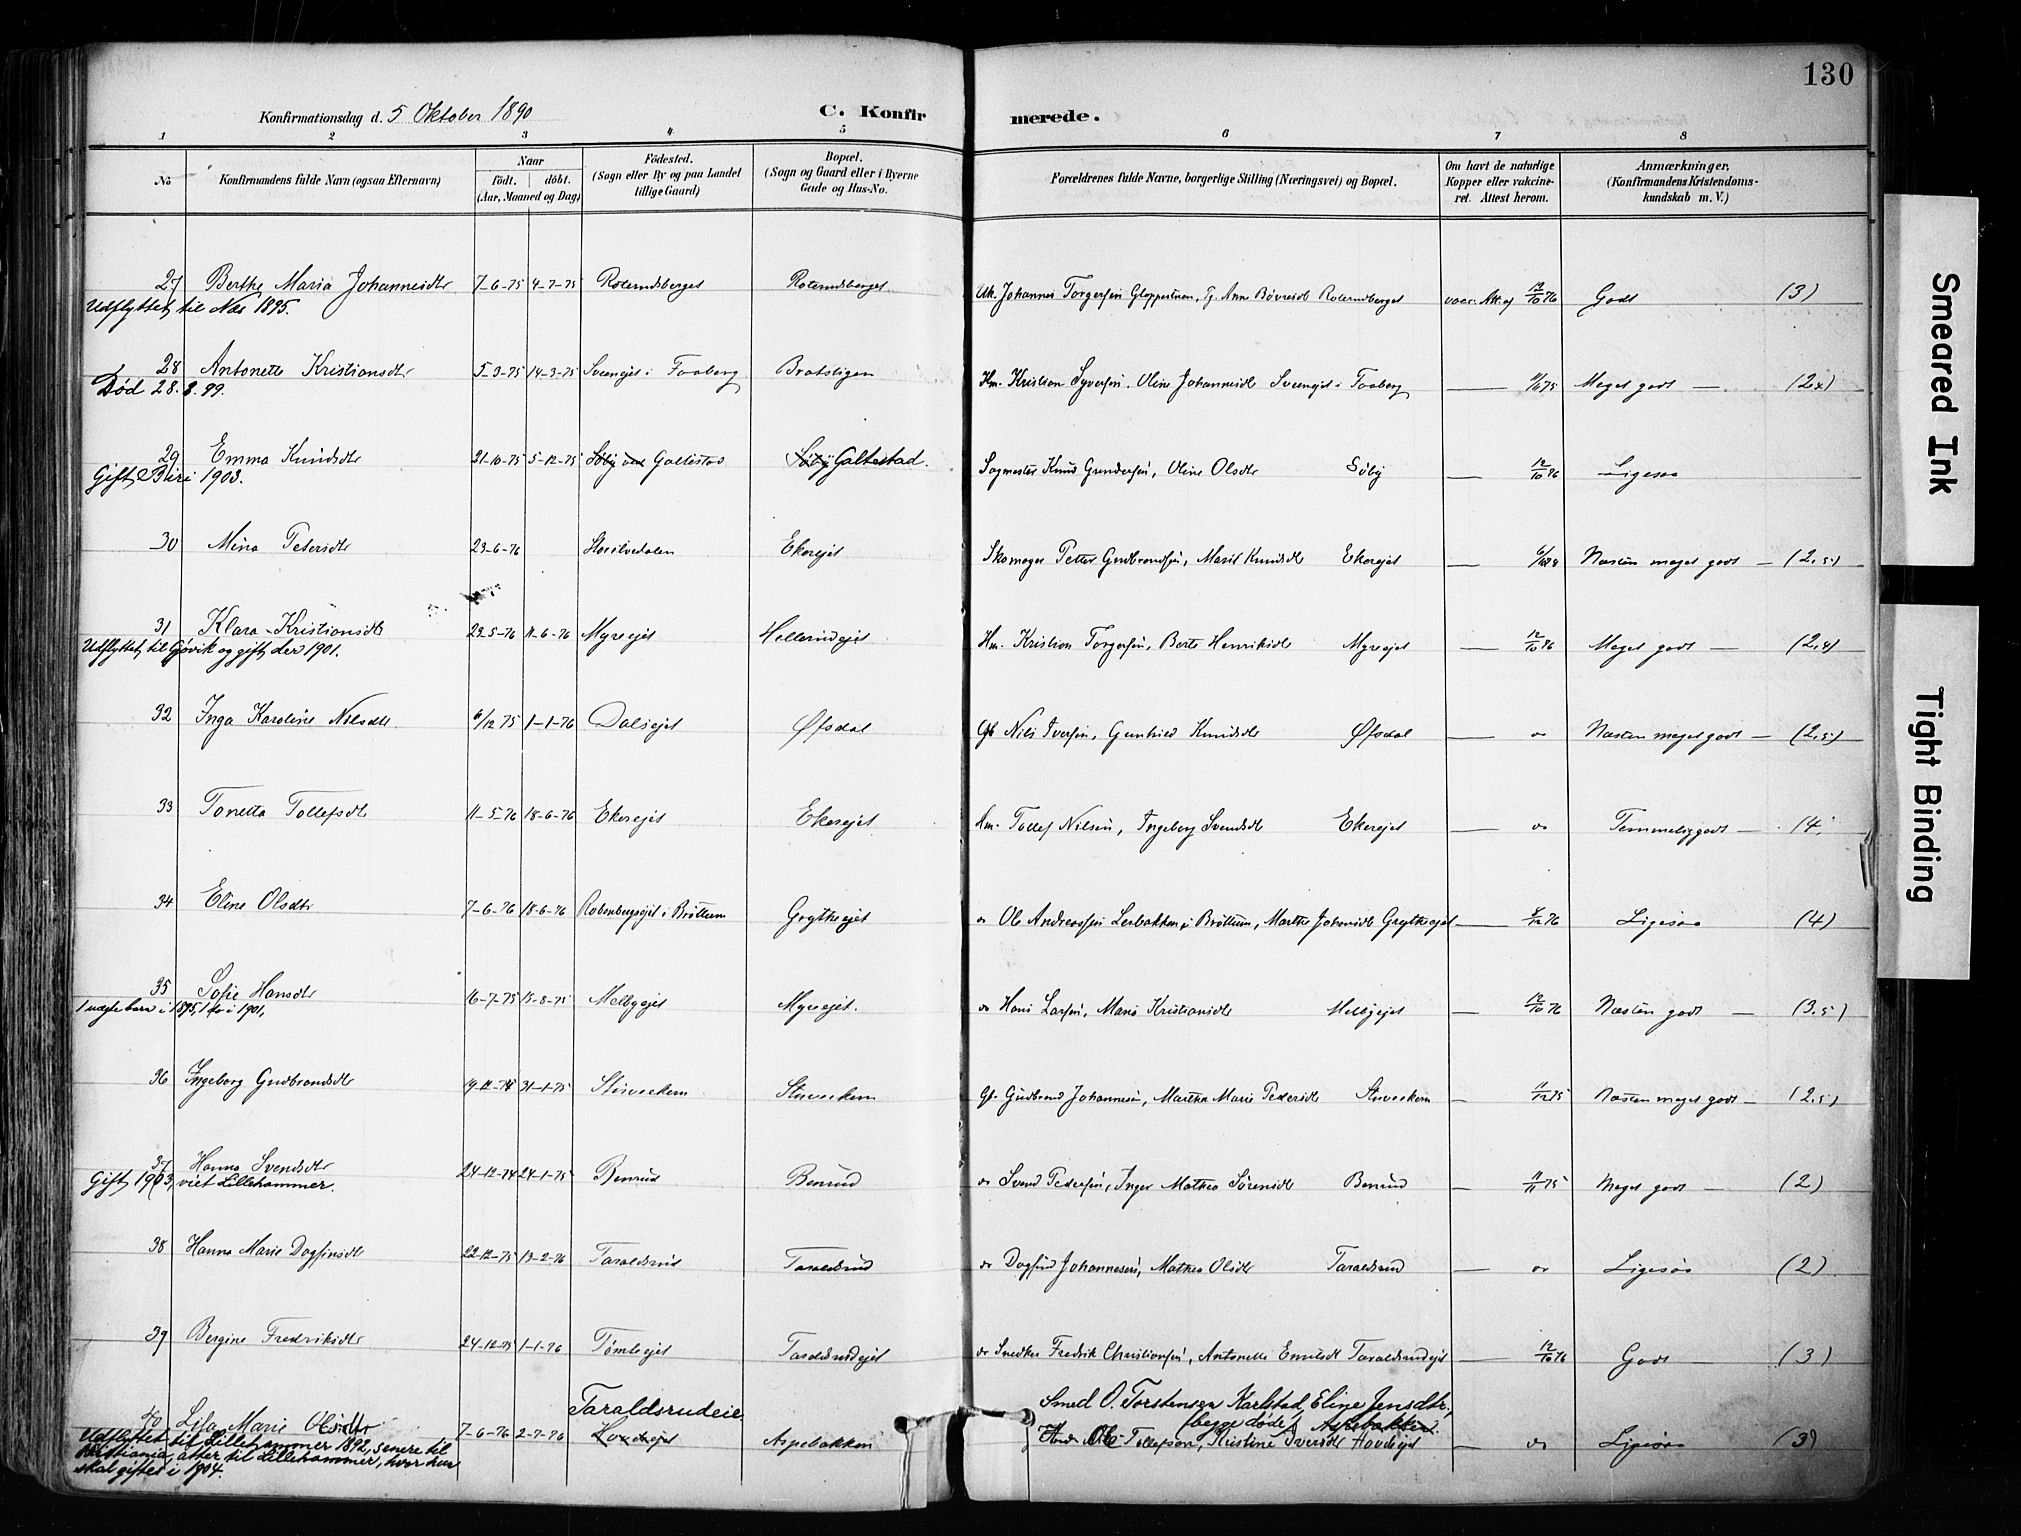 130
Konfirmationsdag d. 5 Oktober 1890
C. Konfirmerede.
1 2 3 4 5 6 7 8
No
Konfirmandens fulde Navn (ogsaa Efternavn)
Naar
födt. döbt.
(Aar, Maaned og Dag)
Födested.
(Sogn eller By og paa Landet
tillige Gaard)
Bopæl.
(Sogn og Gaard eller i Byerne
Gade og Hus-No.
Forældrenes fulde Navne, borgerlige Stilling (Næringsvei) og Bopæl.
Om havt de naturlige
Kopper eller vakcine-
ret. Attest herom.
Anmærkninger,
(Konfirmandens Kristendoms-
kundskab m. V.)
27 Berthe Maria Johannesdtr 7-6-75 4-7-75 Roterudberget Roterudberget Uk. Johannes Torgersen, Anne Roterudberget vacc. Att. af 12/10 76 Godt (3)
Udflyttet til Næs 1895.
28 Antonette Kristiansdtr 5-3-75 14-3-75 Sveenejet i Faaberg Bratstigen Hm. Kristian Syversen, Oline Johannesdtr Sveenejet i Faaberg — Meget godt — (2.4)
Död 28.8.99.
29 Emma Knudsdtr 21-10-75 5-12-75 Söby ved Galtestad Söby Galtestad. Sagmester Knud Gundersen, Oline Olsdtr Söby — 12/10 76 Ligesaa
Gift, Biri 1903.
30 Mina Petersdtr 23-6-76 Ekerejet Skomager Petter Gudbrandsen, Marit Knudsdtr Ekerejet — Næsten meget godt — (2.5)
31 Klara Kristiansdtr 23-5-76 11-6-76 Myrejet Hellerudejet Hm. Kristian Torgersen, Berte Henriksdtr Myrejet — 12/10 76 Meget godt — (2.4)
Udflyttet til Gjövik og gift der 1901.
32 Inga Karoline Nilsdtr. 6/12 75 1-1-76 Dalsejet Öfsdal Gb Nils Iversen, Gunhild Knudsdtr Öfsdal — do Næsten meget godt — (2.5)
33 Tonetta Tollefsdtr 11-5-76 18-6-76 Ekerejet Ekerejet Hm. Tollef Nilsen, Ingeborg Svendsdtr Ekerejet — do Temmelig godt — (4)
34 Eline Olsdtr 7-6-76 18-6-76 Robsbergsejet i Bröttum Grytteejet do Ole Andreassen Lerbakken i Bröttum, Marthe Johansdtr Grytteejet — Ligesaa (4)
35 Sofie Hansdtr 16-7-75 15-8-75 Melbyejet Myrejet. do Hans Larsen, Maria Kristiansdtr Melbyejet — 12/10 76 Næsten godt — (3.5)
1 uægte barn i 1895, 1 do i 1901.
36 Ingeborg Gudbrandsdtr 19-12-74 31-1-75 Sterveekern Sterveekern Gb. Gudbrand Johannesen, Martha Marie Pedersdtr Sterveekern — 11/12 75 Næsten meget godt — (2.5)
37 Hanna Svendsdtr 24-12-74 24-1-75 Benrud Benrud do Svend Pedersen, Inger Mathea Sörensdtr Benrud — 11/11 75 Meget godt — (2)
Gift 1903, viet Lillehammer.
38 Hanna Marie Dagfinsdtr 22-12-75 13-2-76 Taraldsrud Taraldsrud do Dagfind Johannesen, Mathea Olsdtr Taraldsrud — do Ligesaa (2)
39 Bergine Fredriksdtr 24-12-75 1-1-76 Tömteejet Taraldsrudejet do Snedker Fredrik Christiansen, Antonette Emilsdt Taraldsrudejet — 12/10 76 Godt — (3)
Taraldsrudeie Smed O. Torstensen Karlstad, Eline Jensdtr,
(begge döde) Aspebakken.
40 Lisa Marie Olsdtr 7-6-76 2-7-76 Aspebakken Ole Tollefsen, Kristine Iversdtr Hovdejet — do Ligesaa (3)
Udflyttet til Lillehammer 1892, senere til
Kristiania, atter til Lillehammer, hvor hun
skal giftes i 1904.
Smeared Ink
Tight Binding